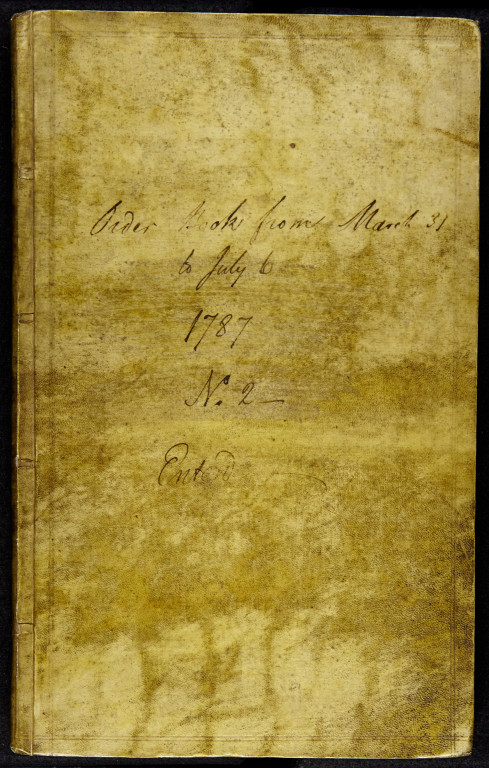 Order Book from March 31
to July 6
1787
No. 2
Enterd